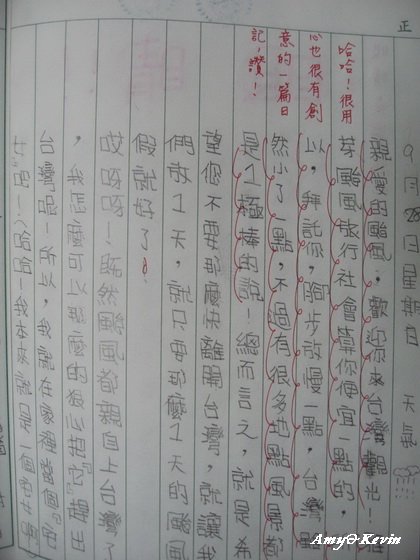 正
哈哈！很用
心也很有創
意的一篇日
記，讚！
9月 日星期日 天氣
親愛的颱風：歡迎你來台灣觀光！
芽颱風旅行社會算你便宜一點的，
以，拜託你，腳步放慢一點，台灣
然小了一點，不過有很多地點風景都
是1極棒的說！總而言之，就是希
望您不要那麼快離開台灣，就讓我
們放1天，就只要那麼1天的颱風
假就好了！
哎呀呀！既然颱風都親自上台灣了
，我怎麼可以那麼的狠心把它趕出
台灣呢！所以，我就在家裡當個
女吧！（哈哈！我本來就是一個 女啊
Amy& Kevin